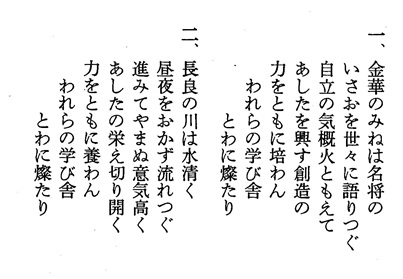 一、金華のみねは名将の
いさおを世々に語りつぐ
自立の気概火ともえて
あしたを興す創造の
力をともに培わん
われらの学び舎
とわに燦たり
二、長良の川は水清く
昼夜をおかず流れつぐ
進みてやまぬ意気高く
あしたの栄え切り開く
力をともに養わん
われらの学び舎
とわに燦たり